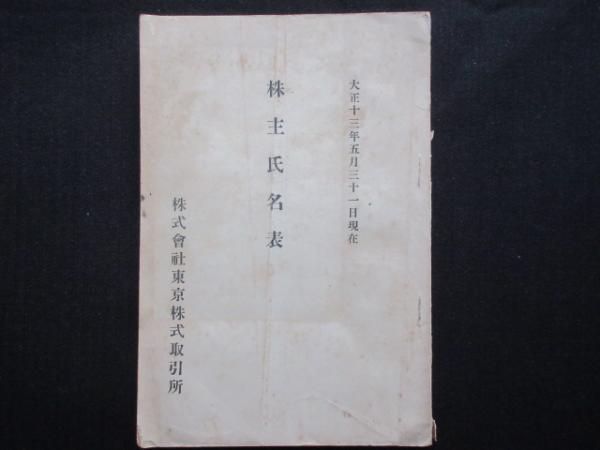 大正十三年五月三十一日現在
株主氏名表
株式會社東京株式取引所